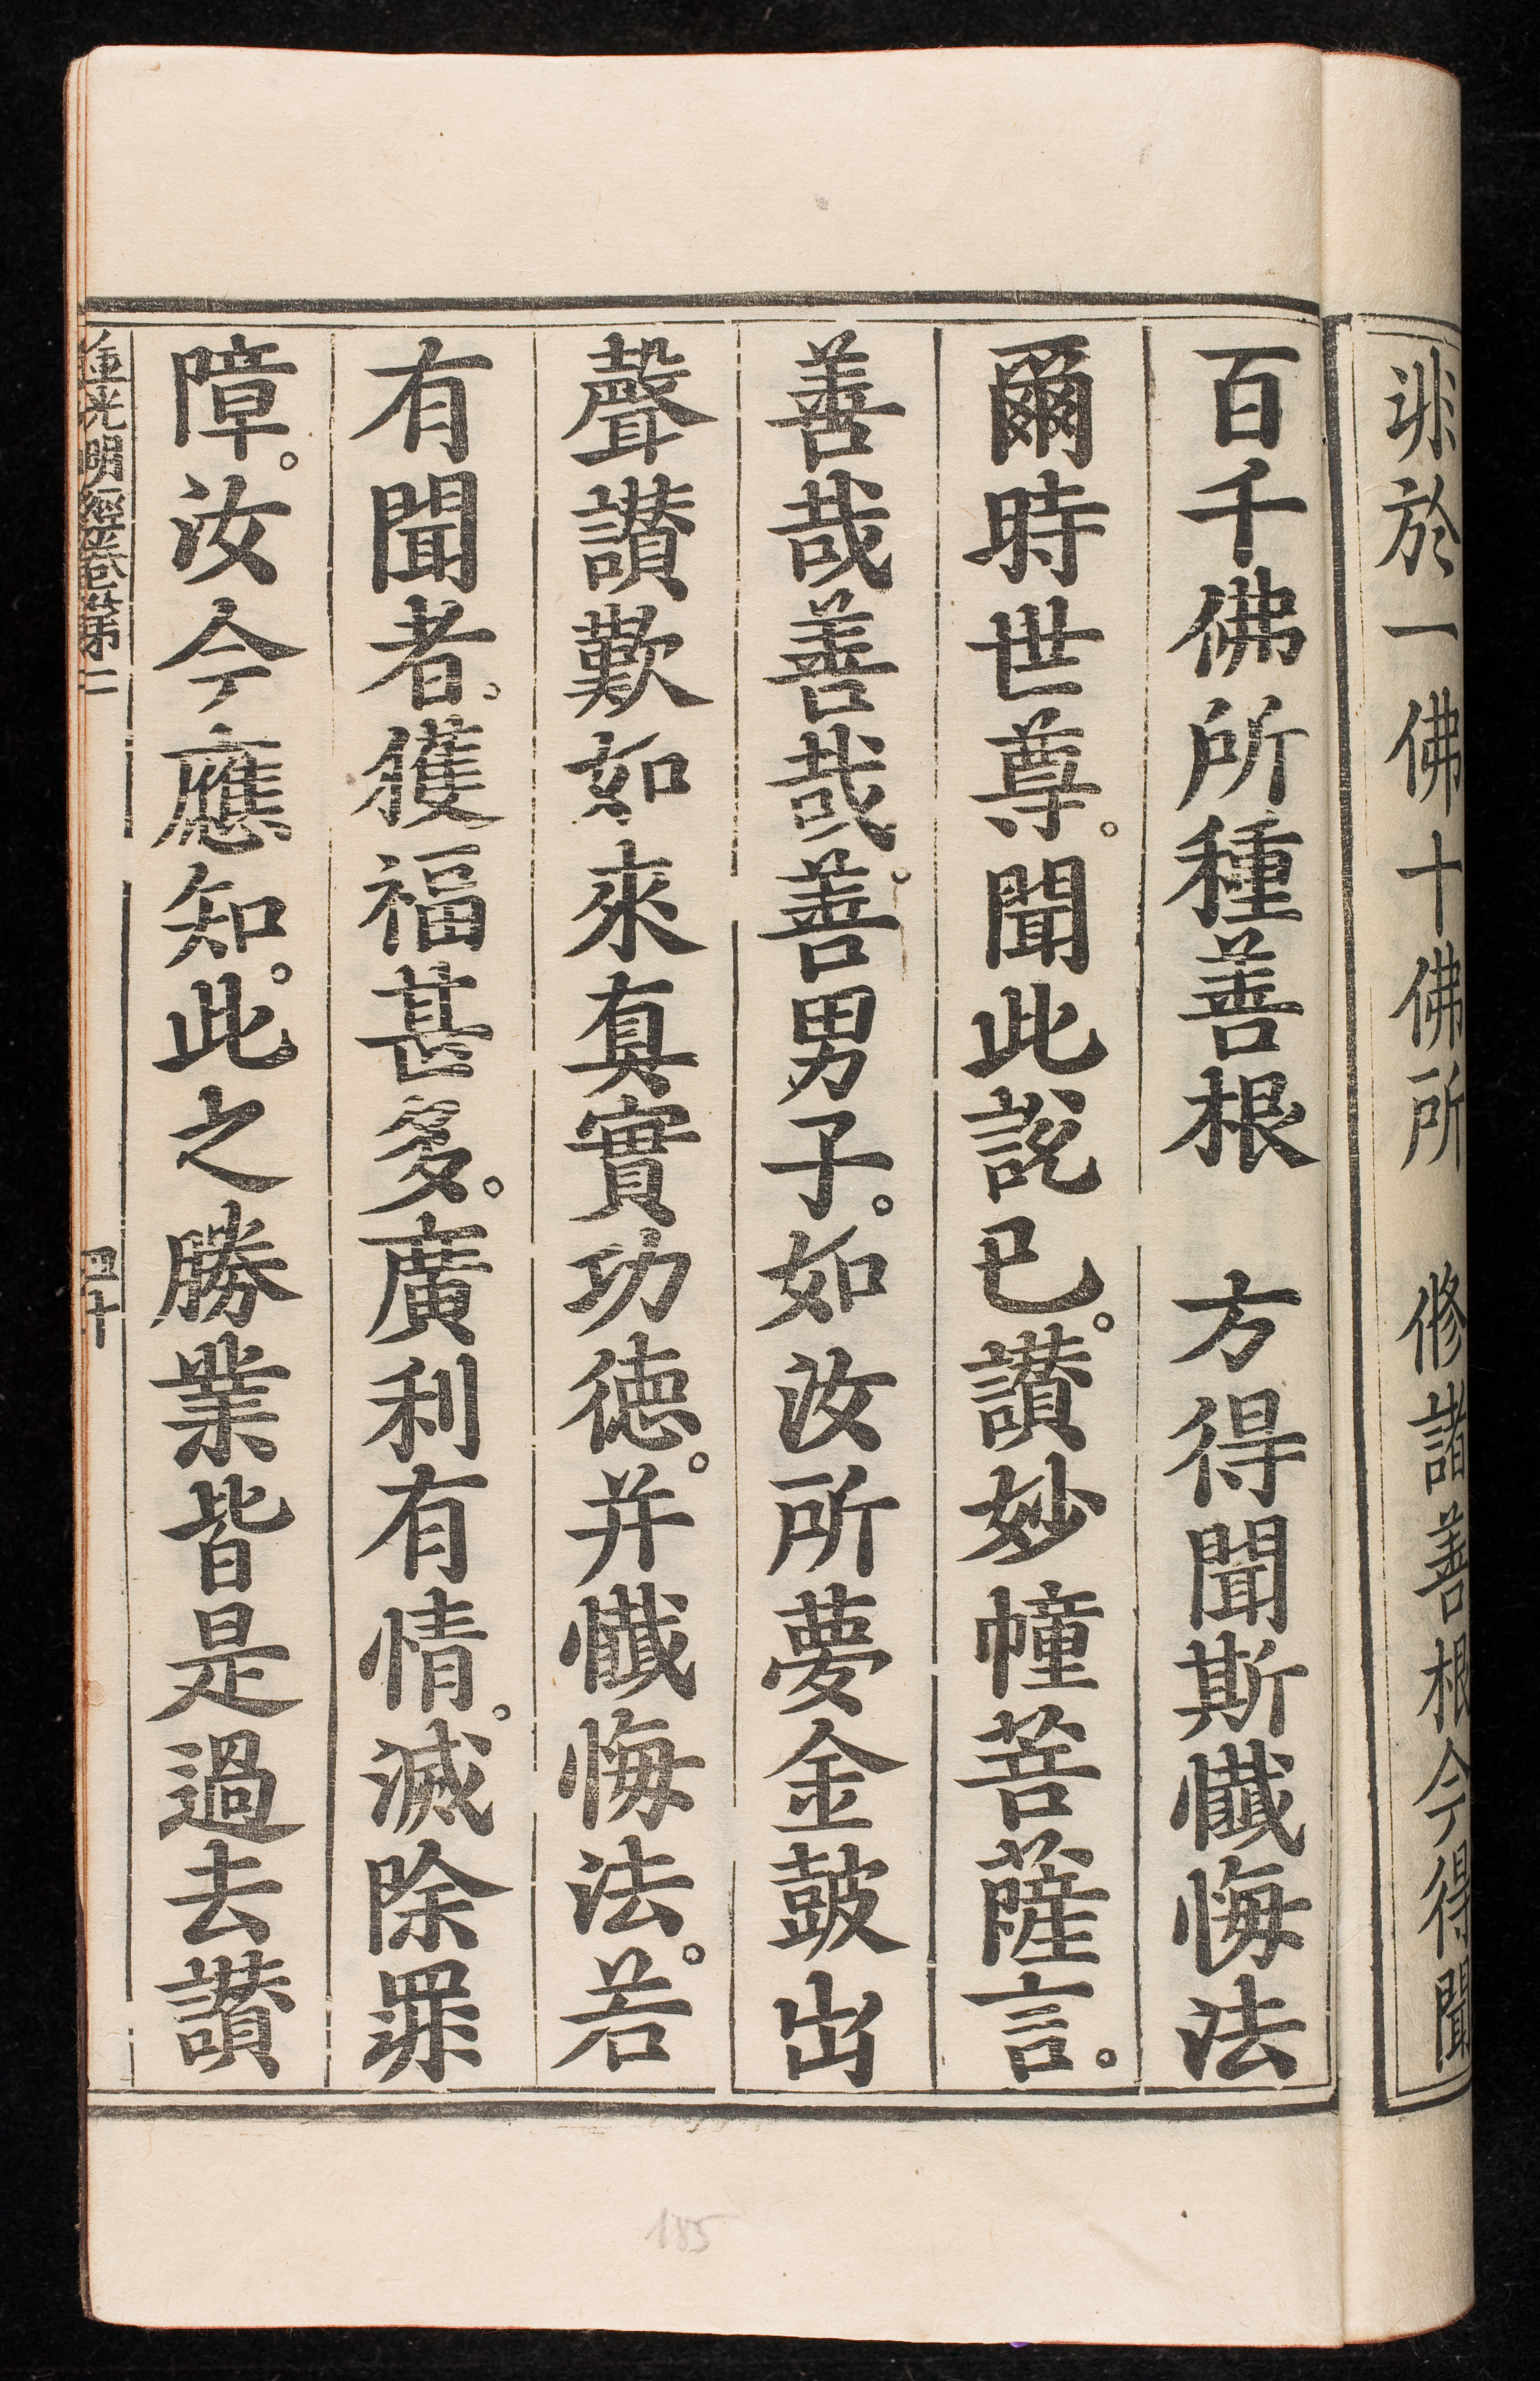 非於一佛十佛所　修諸善根今得聞
百千佛所種善根　方得聞斯懺悔法
爾時世尊。聞此說已。讃妙幢菩薩言。
善哉善哉。善男子。如汝所夢金鼓出
聲讃歎如來真實功德。并懺悔法。若
有聞者。獲福甚多。廣利有情。滅除罪
障。汝今應知。此之勝業皆是過去讃
金光明經卷第二　四十
185